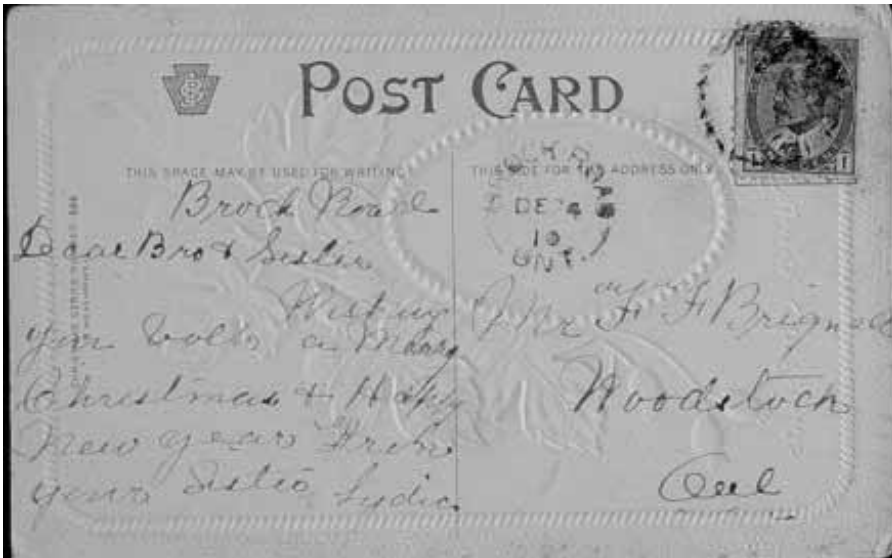 POST CARD
THIS SPACE MAY BE USED FOR WRITING
THIS SIDE FOR THE ADDRESS ONLY
Brock Road
Dear Bro & Sister
Wishing
you both a Merry
Christmas & Happy
New year From
your Sister Lydia
DE 4
10
ONT.
Mr F F Brignall
Woodstock
Ont